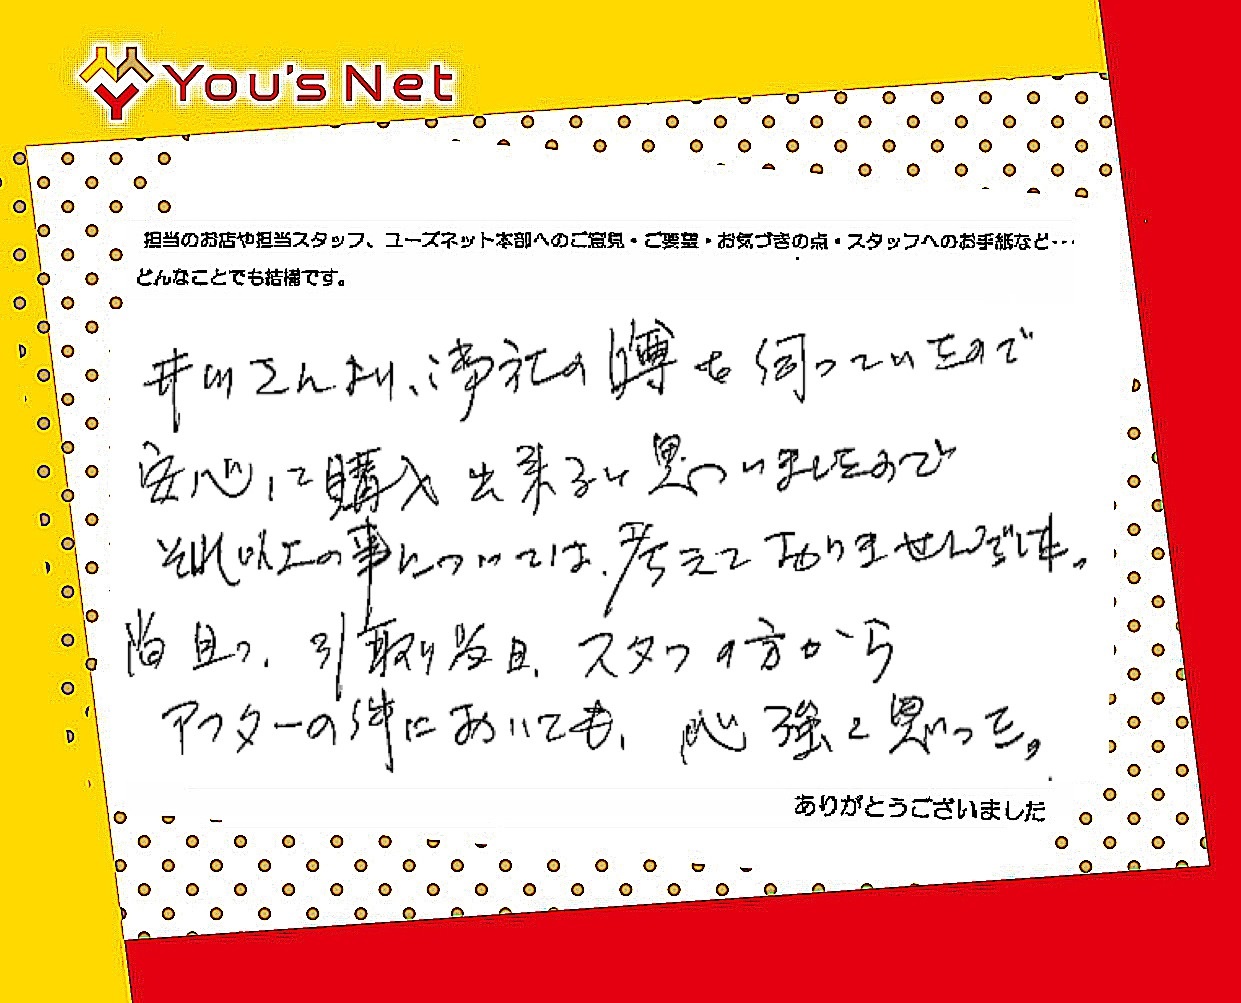 You's Net
担当のお店や担当スタッフ、ユーズネット本部へのご意見・ご要望・お気づきの点・スタッフへのお手紙など…
どんなことでも結構です。
さんより、社の噂も伺っていたので
安心して購入出来ると思っていましたので
それ以上の事については、考えておりませんでした。
当日、引取り当日、スタッフの方から
アフターの件においても、心強く思った。
ありがとうございました